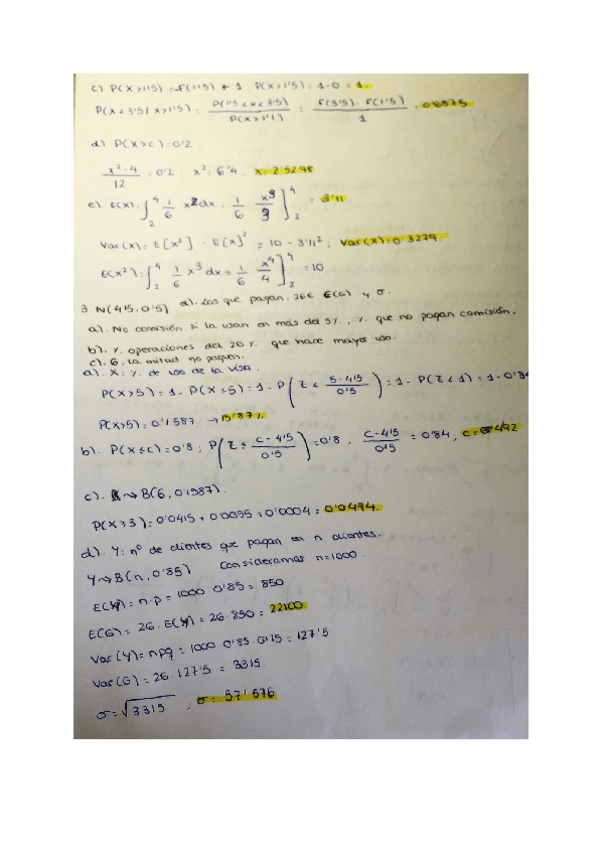 c) P(X>1'5) = F(1'5) + 1, P(X>1'5) = 1-0 = 1.
P(X<3'5/X>1'5) = P(1'5<X<3'5) / P(X>1'1) = F(3'5) - F(1'5) / 1 =
d) P(X>c) = 0'2.
x²-4 / 12 = 0'2 ; x² = 6'4, x = 2'5298
e). E(X) = ∫₂⁴ 1/6 x² dx = 1/6 x³/3 ]₂⁴ = 3'11
Var(x) = E[x²] - E[x]² = 10 - 3'11² ; Var(x) = 0'3279.
E(x²) = ∫₂⁴ 1/6 x³ dx = 1/6 x⁴/4 ]₂⁴ = 10
3 N(4'5, 0'5) d). Los que pagan, 26€ E(G) y σ.
a). No comisión si la usan en más del 5%, % que no pagan comisión.
b). % operaciones del 20% que hace mayor uso.
c). 6, la mitad no paguen.
a). X: % de uso de la visa.
P(X>5) = 1 - P(X≤5) = 1 - P(Z < 5-4'5 / 0'5) = 1 - P(Z<1) = 1 - 0'84
P(X>5) = 0'1587 → 15'87%
b). P(X≤c) = 0'8 ; P(Z ≤ c-4'5 / 0'5) = 0'8, c-4'5 / 0'5 = 0'84,
c). X → B(6, 0'1587).
P(X≥3) = 0'0415 + + 0'0004 = 0'0494.
d). Y: nº de clientes que pagan en n clientes.
Y → B(n, 0'85) Consideramos n=1000.
E(Y) = n·p = 1000 · 0'85 = 850
E(G) = 26 · E(Y) = 26 · 850 = 22100
Var(Y) = npq = 1000 · 0'85 · 0'15 = 127'5
Var(G) = 26 · 127'5 = 3315.
σ = √3315 ; σ = 57'576